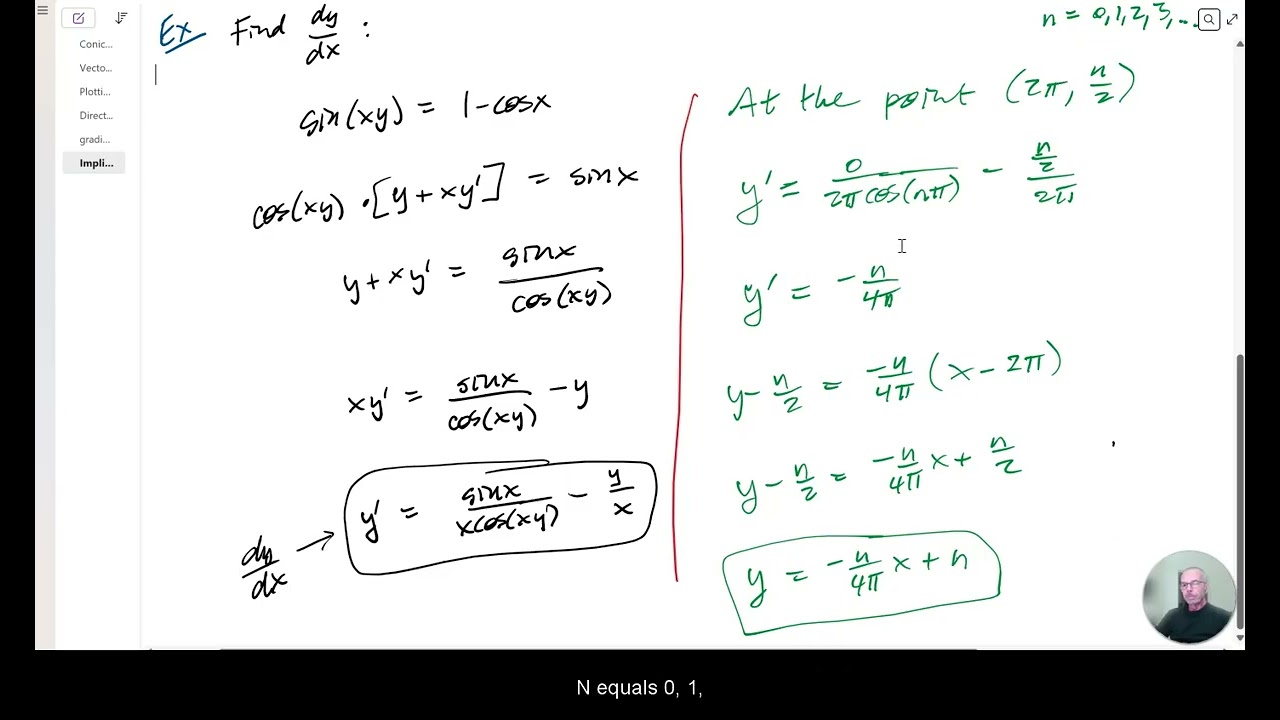 Conic...
Vecto...
Plotti...
Direct...
gradi...
Impli...
Ex Find dy/dx :
sin(xy) = 1-cosx
cos(xy) · [y + xy'] = sinx
y + xy' = sinx / cos(xy)
xy' = sinx / cos(xy) - y
dy/dx → y' = sinx / xcos(xy) - y/x
n = 0,1,2,3,...
At the point (2π, n/2)
y' = 0 / 2πcos(nπ) - n/2 / 2π
y' = -n/4π
y - n/2 = -n/4π (x - 2π)
y - n/2 = -n/4π x + n/2
y = -n/4π x + n
N equals 0, 1,